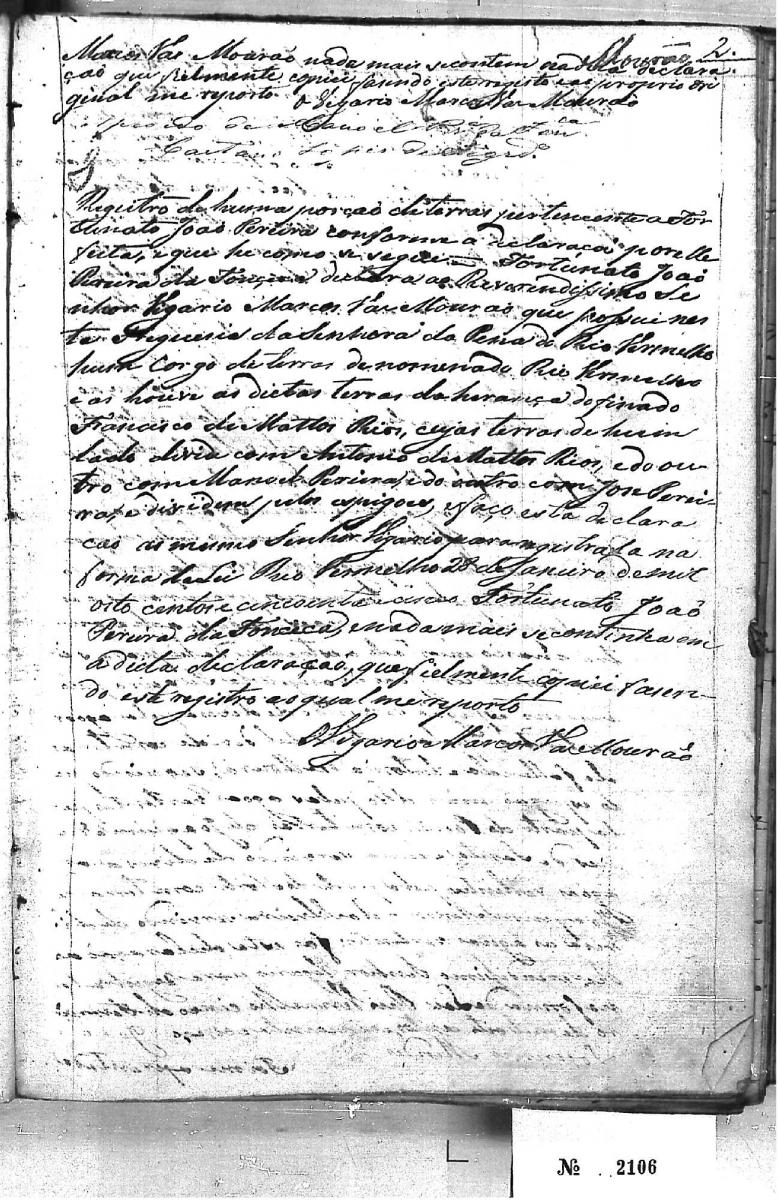 Mourão 2.
Marcos Vas Mourão nada mais secontem na dita declara
ção que fielmente copiei fasendo este registo e ao proprio ori
ginal me reporto O Vigario Marcos Vas Mourão
de Manoel
Caetano
Registro de huma porção de terras pertencente a For
tunato João Pereira conforme a declaração por elle
feita, e que he como se segue = Fortunato João
Pereira da Fonceca declara ao Reverendissimo Se
nhor Vigario Marcos Vas Mourão que possui nes
ta Freguesia da Senhora da Pena do Rio Vermelho
hum Corgo de terras denomenado Rio Vermelho
e as houve as dictas terras da herança do finado
Francisco de Mattos Rios, cujas terras de hum
lado divida com Antonio de Mattos Rios, e do ou
tro com Manoel Pereira, e do outro com Jose Perei
ra, e dividem pelos espigoes, e faço esta declara
ção ao mesmo Senhor Vigario para registrala na
forma da Lei Rio Vermelho 28 de Janeiro de mil
oito centos e cincoenta e cinco Fortunato João
Pereira da Fonceca, e nada mais se continha em
a dicta declaração, que fielmente copiei fasen-
do este registro ao qual me reporto
O Vigario Marcos Vas Mourão
№ 2106